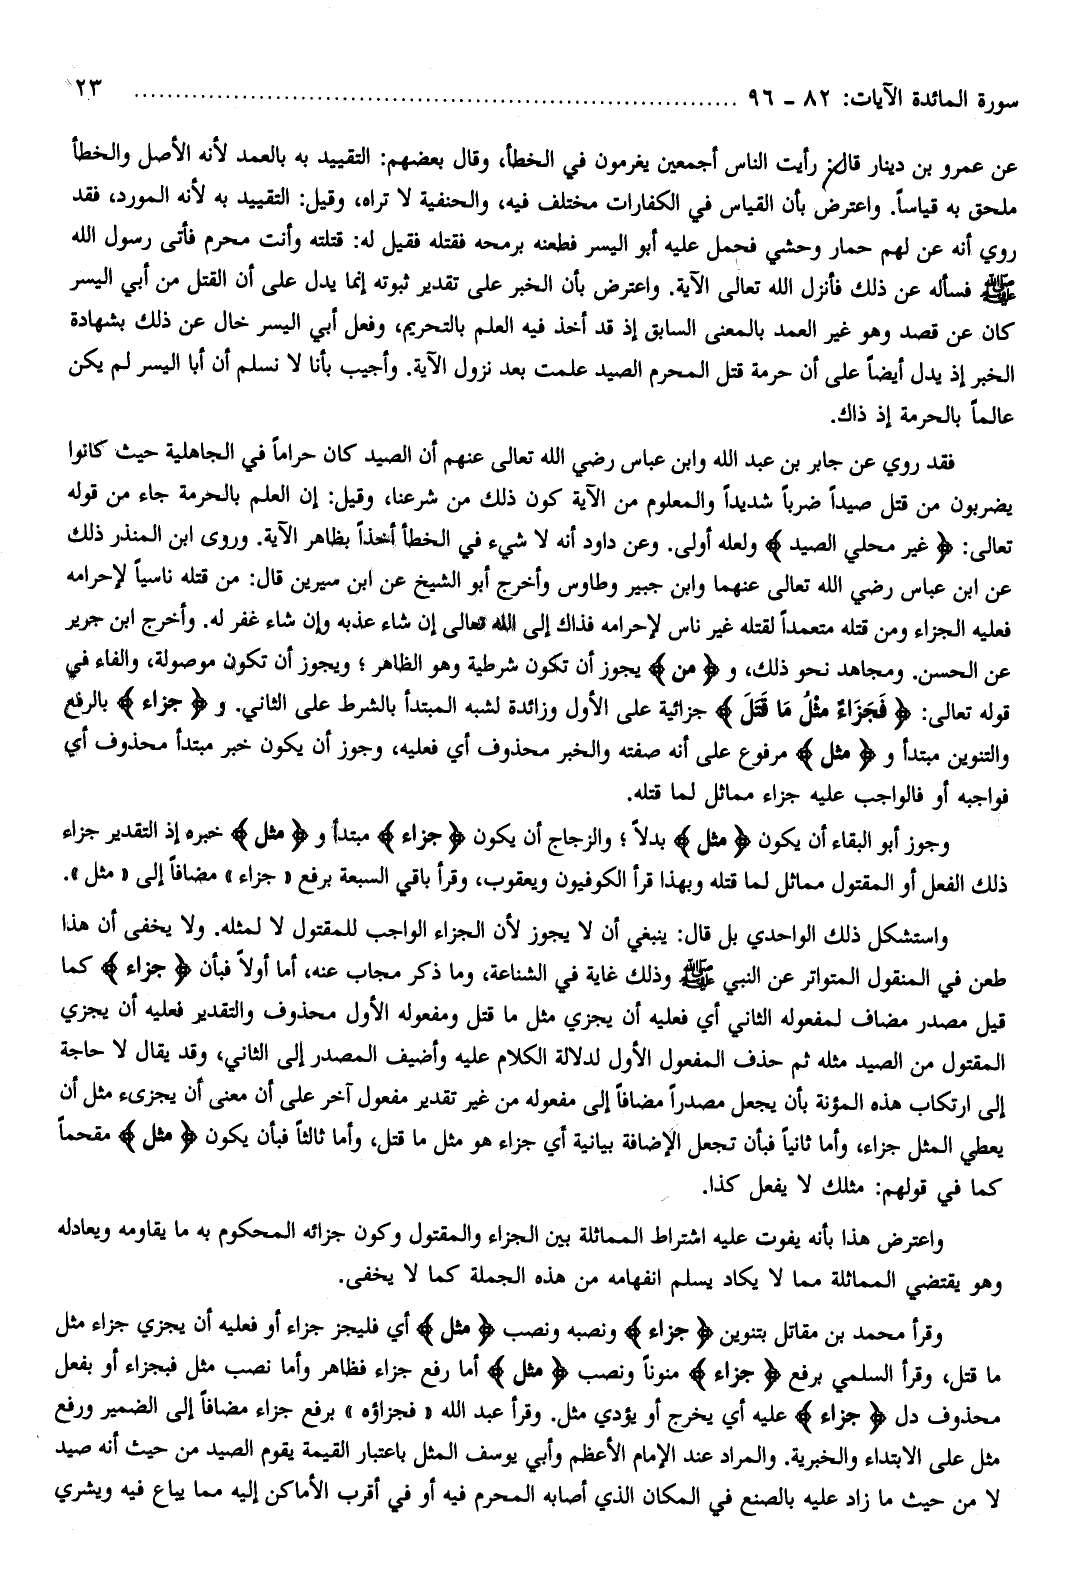 سورة المائدة الآيات: ٨٢ - ٩٦ ........................................................................ ٢٣
عن عمرو بن دينار قال: رأيت الناس أجمعين يغرمون في الخطأ، وقال بعضهم: التقييد به بالعمد لأنه الأصل والخطأ
ملحق به قياساً. واعترض بأن القياس في الكفارات مختلف فيه، والحنفية لا تراه، وقيل: التقييد به لأنه المورد، فقد
روي أنه عن لهم حمار وحشي فحمل عليه أبو اليسر فطعنه برمحه فقتله فقيل له: قتلته وأنت محرم فأتى رسول الله
ﷺ فسأله عن ذلك فأنزل الله تعالى الآية. واعترض بأن الخبر على تقدير ثبوته إنما يدل على أن القتل من أبي اليسر
كان عن قصد وهو غير العمد بالمعنى السابق إذ قد أخذ فيه العلم بالتحريم، وفعل أبي اليسر خال عن ذلك بشهادة
الخبر إذ يدل أيضاً على أن حرمة قتل المحرم الصيد علمت بعد نزول الآية. وأجيب بأنا لا نسلم أن أبا اليسر لم يكن
عالماً بالحرمة إذ ذاك.
فقد روي عن جابر بن عبد الله وابن عباس رضي الله تعالى عنهم أن الصيد كان حراماً في الجاهلية حيث كانوا
يضربون من قتل صيداً ضرباً شديداً والمعلوم من الآية كون ذلك من شرعنا، وقيل: إن العلم بالحرمة جاء من قوله
تعالى: ﴿ غير محلي الصيد ﴾ ولعله أولى. وعن داود أنه لا شيء في الخطأ أخذاً بظاهر الآية. وروى ابن المنذر ذلك
عن ابن عباس رضي الله تعالى عنهما وابن جبير وطاوس وأخرج أبو الشيخ عن ابن سيرين قال: من قتله ناسياً لإحرامه
فعليه الجزاء ومن قتله متعمداً لقتله غير ناس لإحرامه فذاك إلى الله تعالى إن شاء عذبه وإن شاء غفر له. وأخرج ابن جرير
عن الحسن. ومجاهد نحو ذلك، و ﴿ من ﴾ يجوز أن تكون شرطية وهو الظاهر ؛ ويجوز أن تكون موصولة، والفاء في
قوله تعالى: ﴿ فَجَزَاءٌ مثْلُ مَا قَتَلَ ﴾ جزائية على الأول وزائدة لشبه المبتدأ بالشرط على الثاني. و ﴿ جزاء ﴾ بالرفع
والتنوين مبتدأ و ﴿ مثل ﴾ مرفوع على أنه صفته والخبر محذوف أي فعليه، وجوز أن يكون خبر مبتدأ محذوف أي
فواجبه أو فالواجب عليه جزاء مماثل لما قتله.
وجوز أبو البقاء أن يكون ﴿ مثل ﴾ بدلاً ؛ والزجاج أن يكون ﴿ جزاء ﴾ مبتدأ و ﴿ مثل ﴾ خبره إذ التقدير جزاء
ذلك الفعل أو المقتول مماثل لما قتله وبهذا قرأ الكوفيون ويعقوب، وقرأ باقي السبعة برفع « جزاء » مضافاً إلى « مثل ».
واستشكل ذلك الواحدي بل قال: ينبغي أن لا يجوز لأن الجزاء الواجب للمقتول لا لمثله. ولا يخفى أن هذا
طعن في المنقول المتواتر عن النبي ﷺ وذلك غاية في الشناعة، وما ذكر مجاب عنه، أما أولاً فبأن ﴿ جزاء ﴾ كما
قيل مصدر مضاف لمفعوله الثاني أي فعليه أن يجزي مثل ما قتل ومفعوله الأول محذوف والتقدير فعليه أن يجزي
المقتول من الصيد مثله ثم حذف المفعول الأول لدلالة الكلام عليه وأضيف المصدر إلى الثاني، وقد يقال لا حاجة
إلى ارتكاب هذه المؤنة بأن يجعل مصدراً مضافاً إلى مفعوله من غير تقدير مفعول آخر على أن معنى أن يجزىء مثل أن
يعطي المثل جزاء، وأما ثانياً فبأن تجعل الإضافة بيانية أي جزاء هو مثل ما قتل، وأما ثالثاً فبأن يكون ﴿ مثل ﴾ مقحماً
كما في قولهم: مثلك لا يفعل كذا.
واعترض هذا بأنه يفوت عليه اشتراط المماثلة بين الجزاء والمقتول وكون جزائه المحكوم به ما يقاومه ويعادله
وهو يقتضي المماثلة مما لا يكاد يسلم انفهامه من هذه الجملة كما لا يخفى.
وقرأ محمد بن مقاتل بتنوين ﴿ جزاء ﴾ ونصبه ونصب ﴿ مثل ﴾ أي فليجز جزاء أو فعليه أن يجزي جزاء مثل
ما قتل، وقرأ السلمي برفع ﴿ جزاء ﴾ منوناً ونصب ﴿ مثل ﴾ أما رفع جزاء فظاهر وأما نصب مثل فبجزاء أو بفعل
محذوف دل ﴿ جزاء ﴾ عليه أي يخرج أو يؤدي مثل. وقرأ عبد الله « فجزاؤه » برفع جزاء مضافاً إلى الضمير ورفع
مثل على الابتداء والخبرية. والمراد عند الإمام الأعظم وأبي يوسف المثل باعتبار القيمة يقوم الصيد من حيث أنه صيد
لا من حيث ما زاد عليه بالصنع في المكان الذي أصابه المحرم فيه أو في أقرب الأماكن إليه مما يباع فيه ويشري